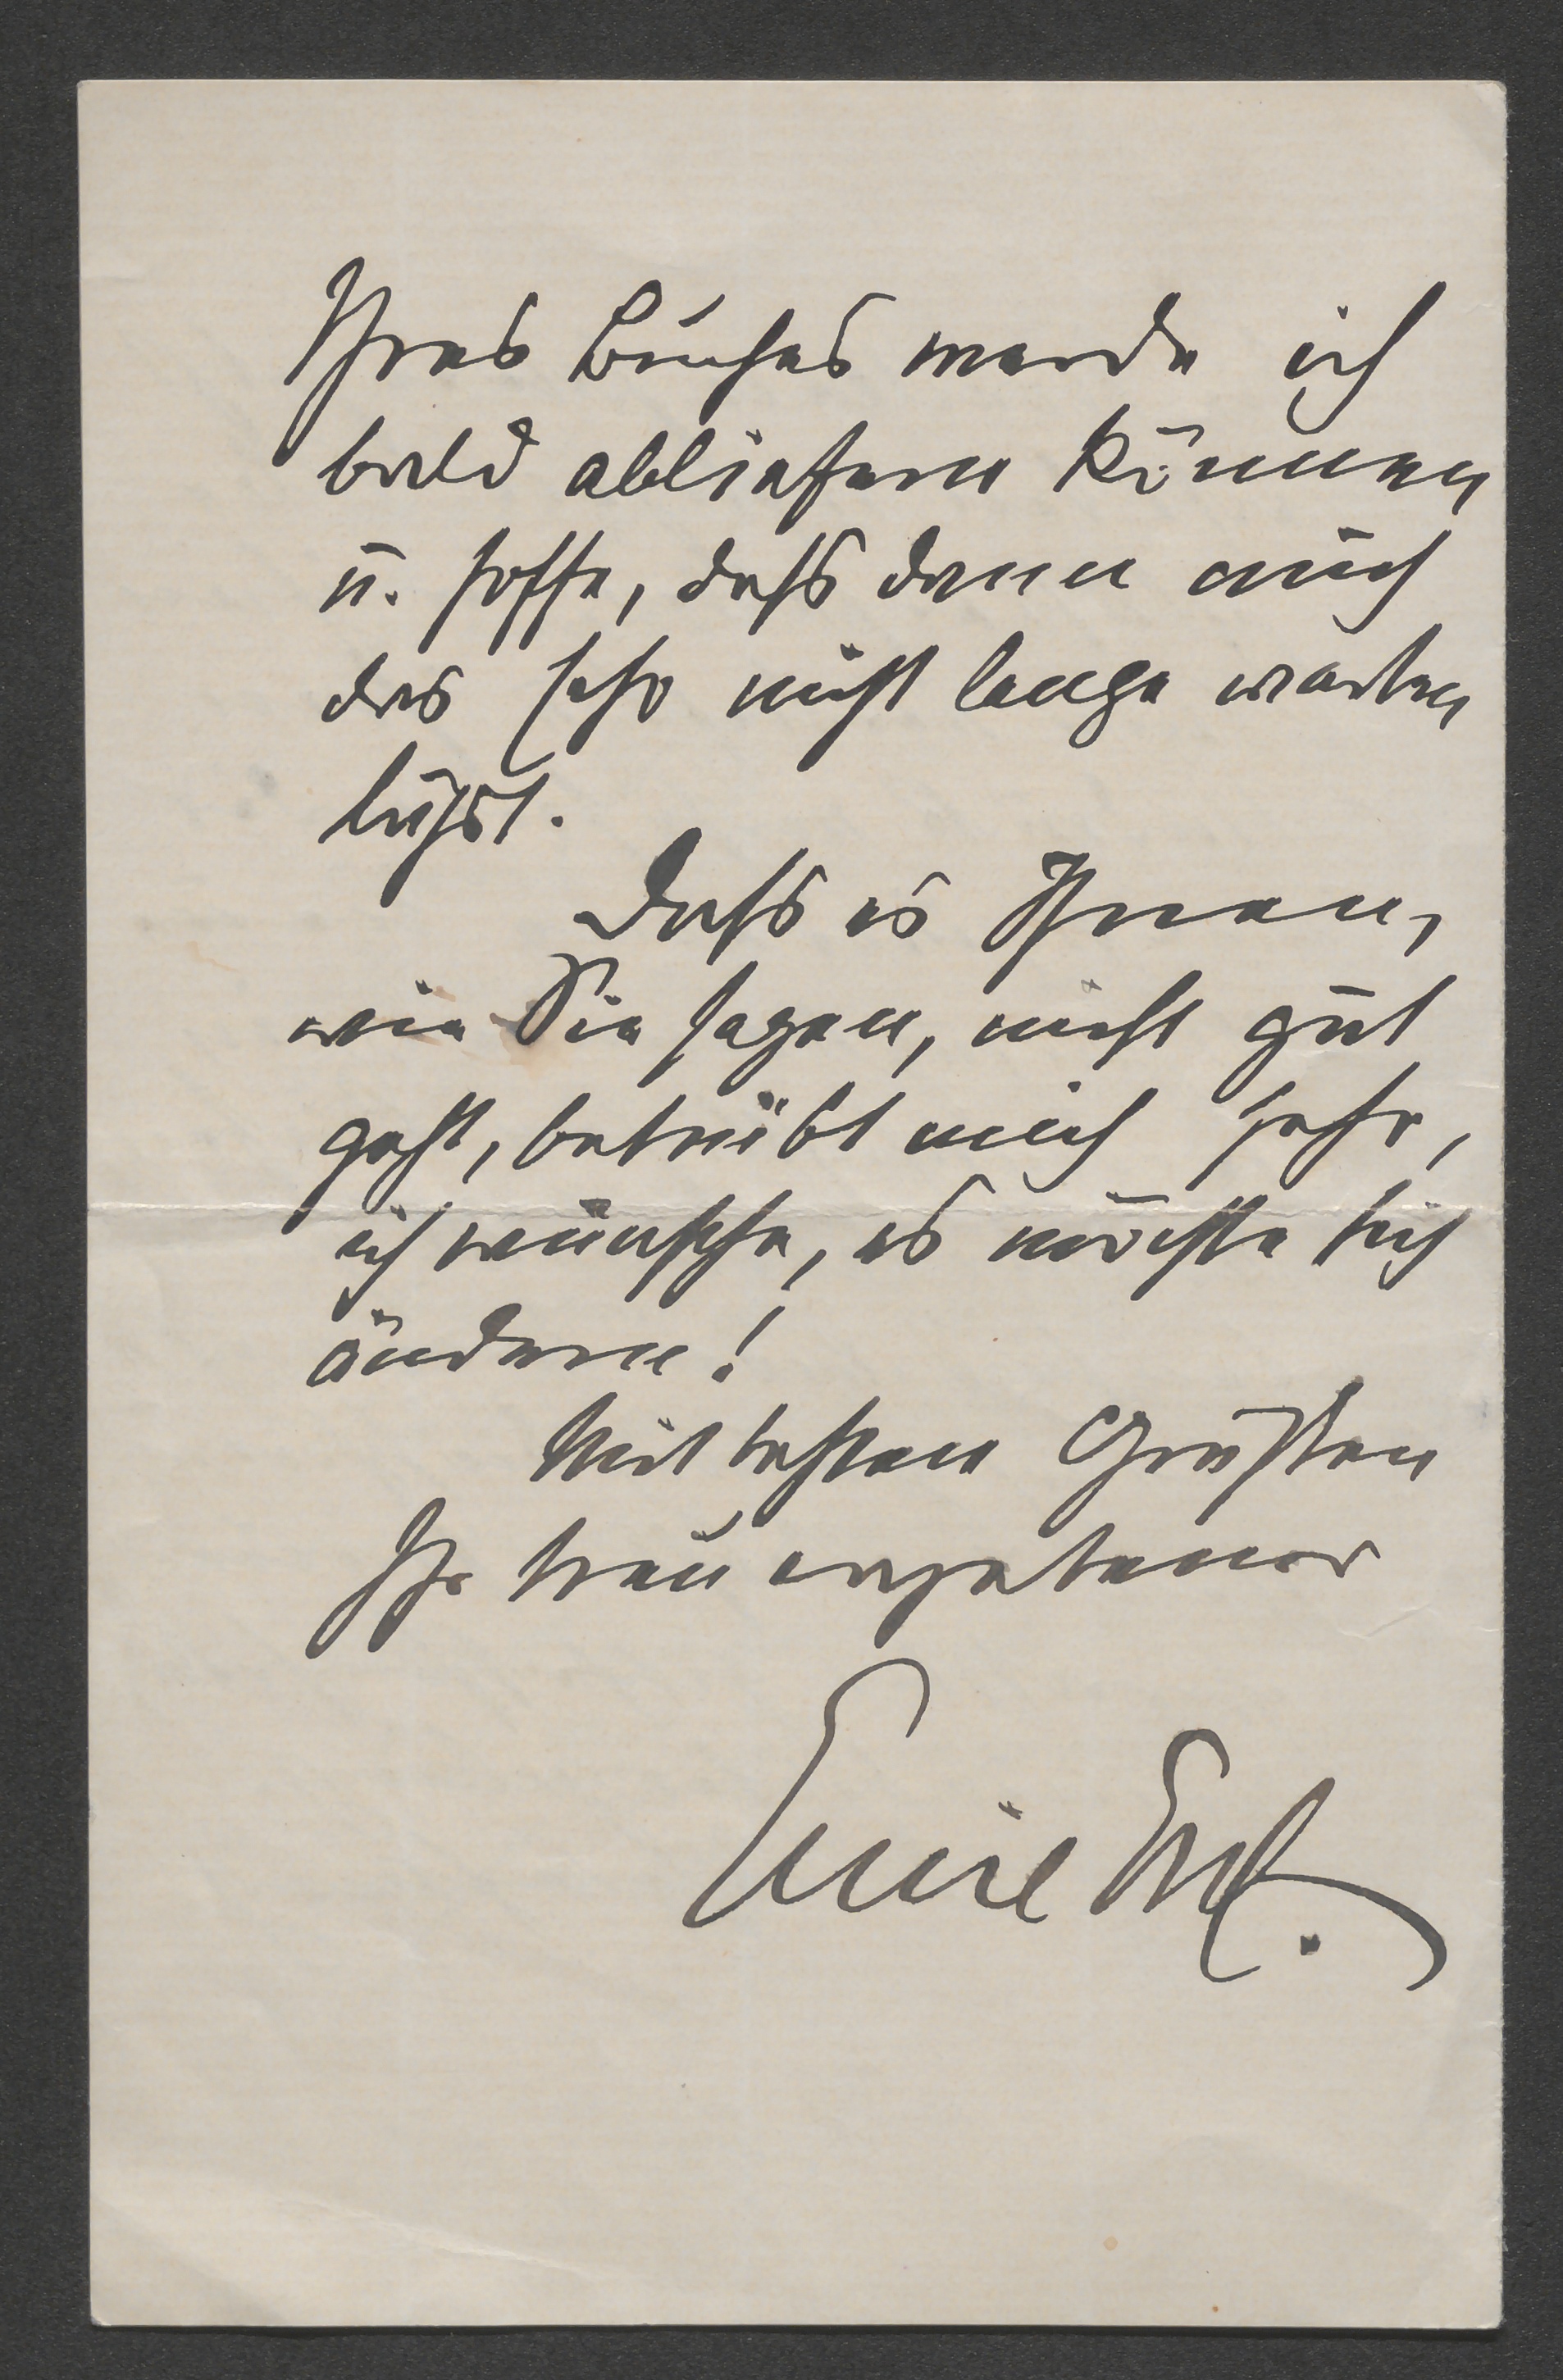 Ihres Buches werde ich
bald abliefern können
u. hoffe, dass dann auch
das Echo nicht lange warten
lässt.
Dass es Ihnen,
wie Sie sagen, nicht gut
geht, betrübt mich sehr,
ich wünsche, es möchte sich
ändern!
Mit besten Grüssen
Ihr treu ergebener
Emil Ertl.